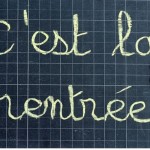 C'est la
rentrée